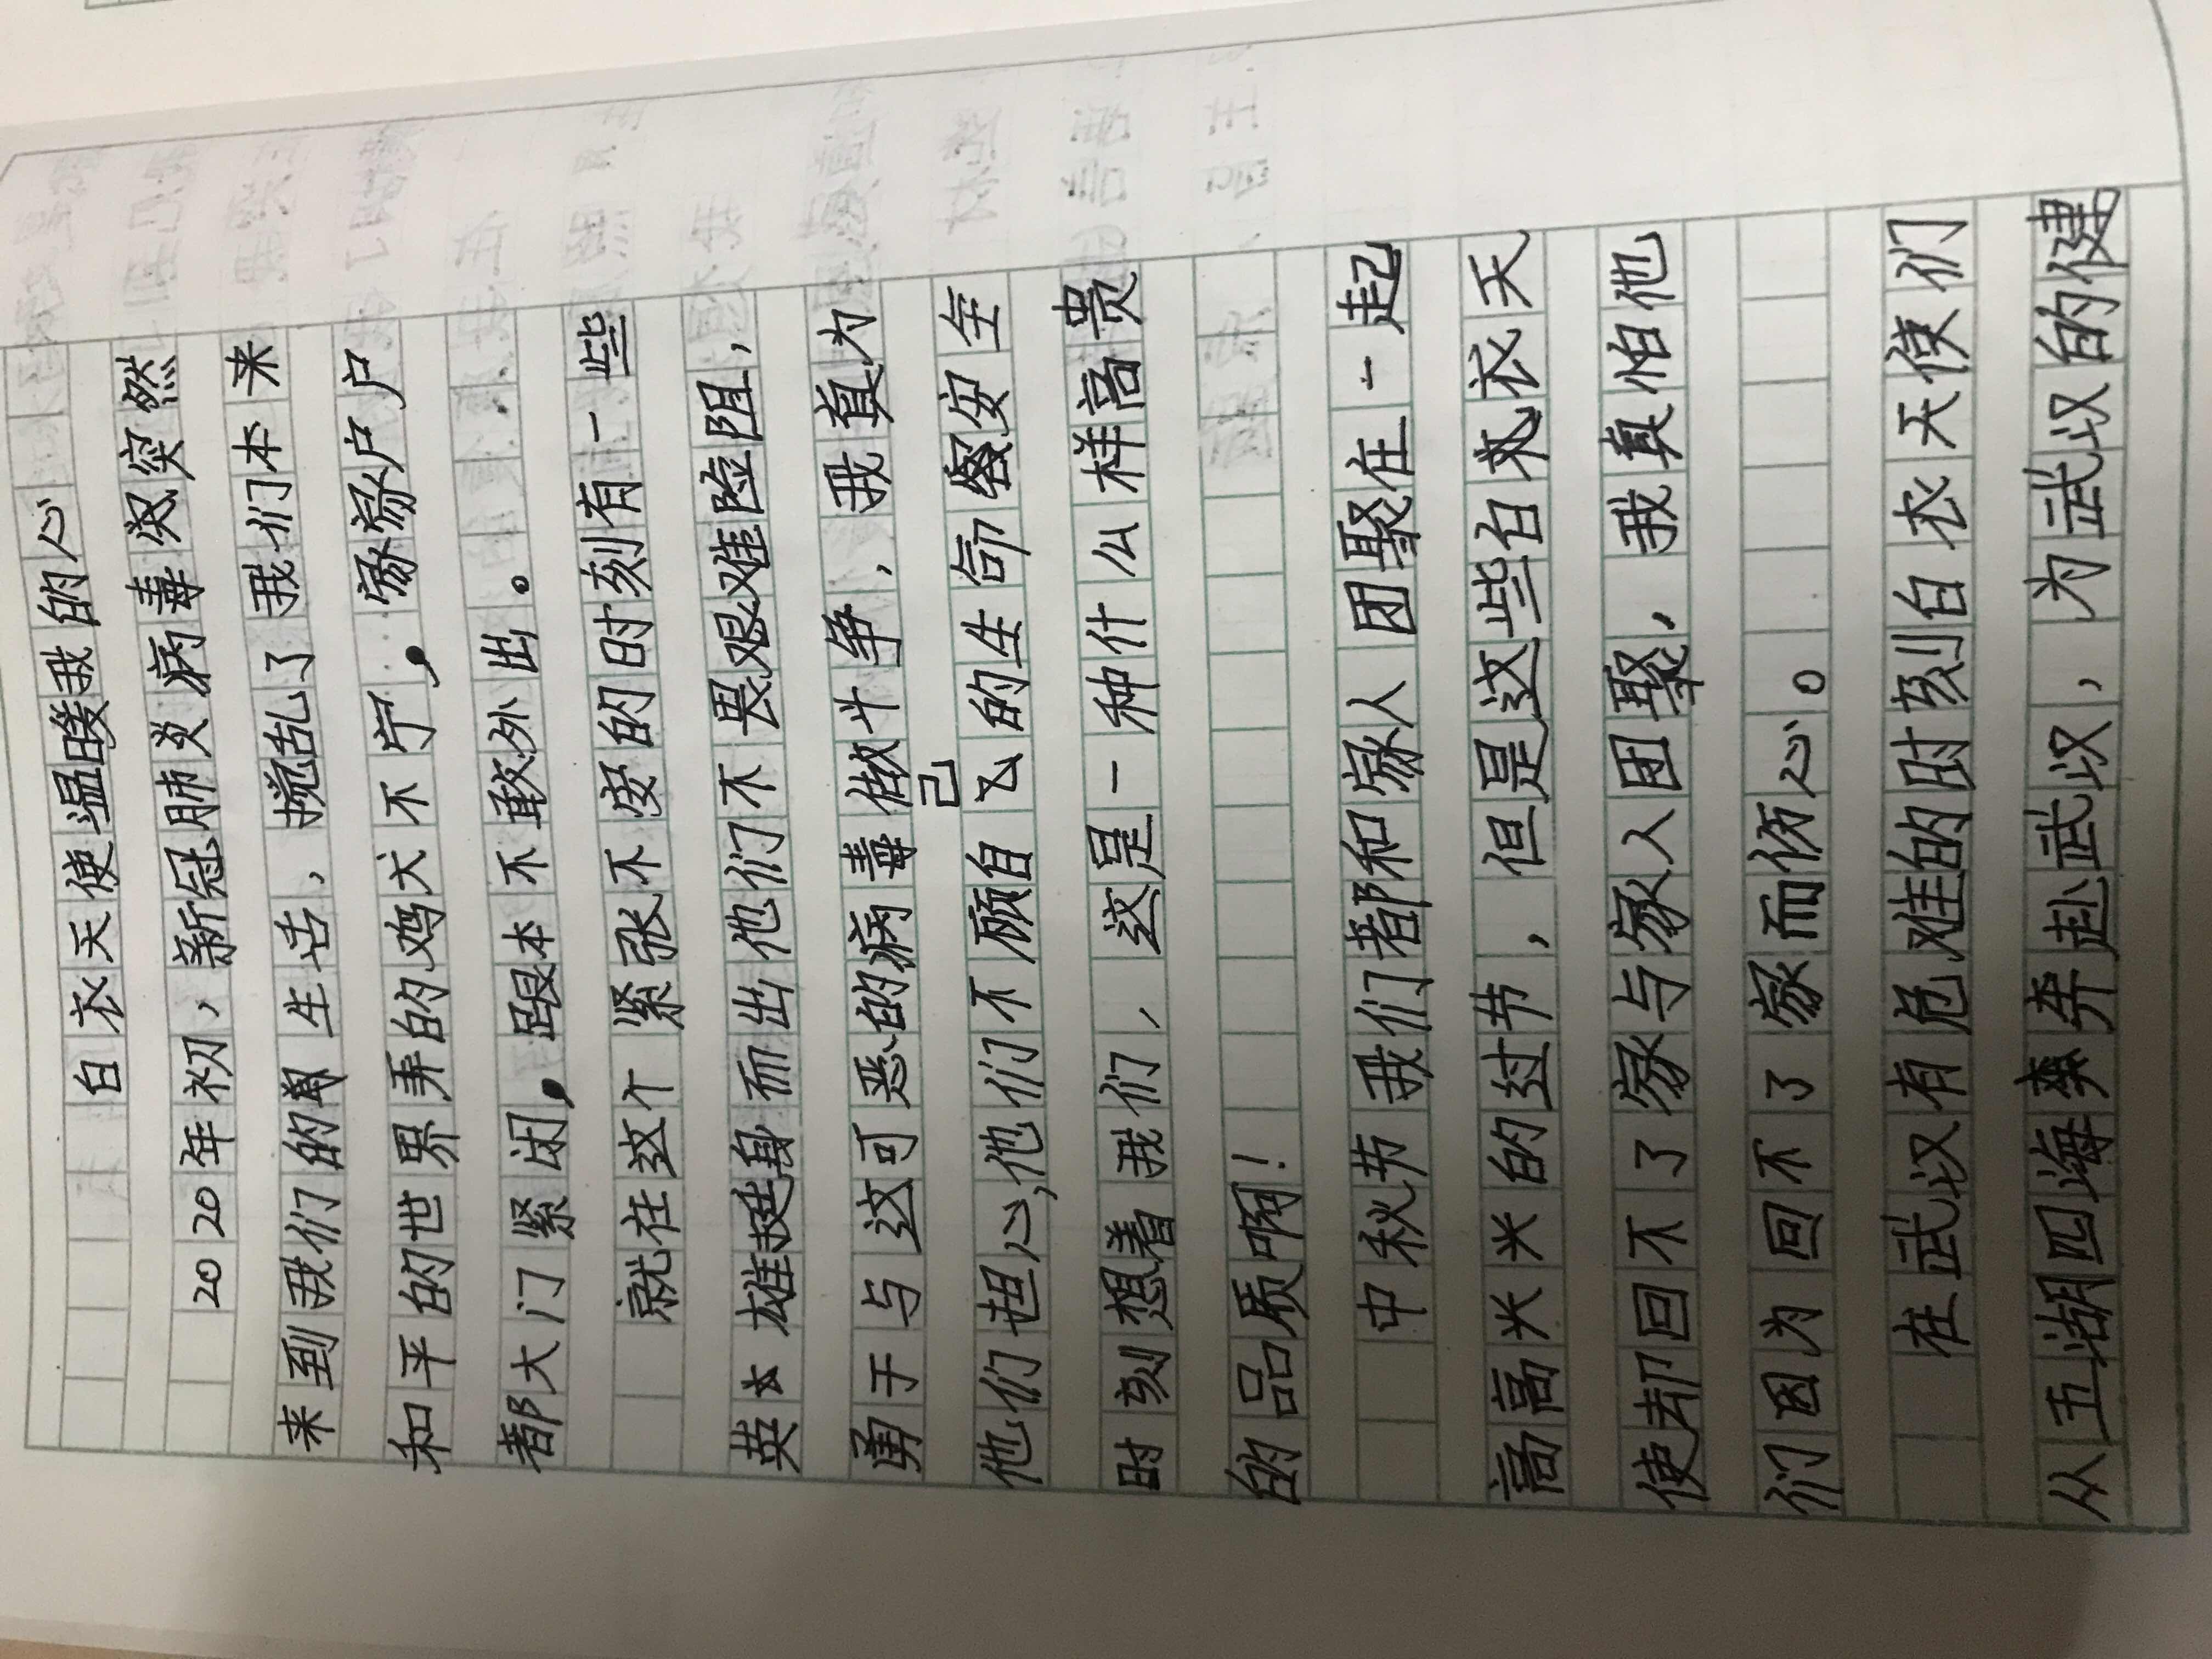 白衣天使温暖我的心
2020年初，新冠肺炎病毒突然
来到我们的生活，搅乱了我们本来
和平的世界弄的鸡犬不宁，家家户户
都大门紧闭，跟本不敢外出。
就在这个紧张不安的时刻有一些
英雄挺身而出他们不畏艰难险阻，
勇于与这可恶的病毒做斗争，我真为
他们担心,他们不顾自己的生命安全
时刻想着我们，这是一种什么样高贵
的品质啊！
中秋节我们都和家人团聚在一起
高高兴兴的过节，但是这些白衣天
使却回不了家与家人团聚，我真怕他
们因为回不了家而伤心。
在武汉有危难的时刻白衣天使们
从五湖四海奔赴武汉，为武汉的健